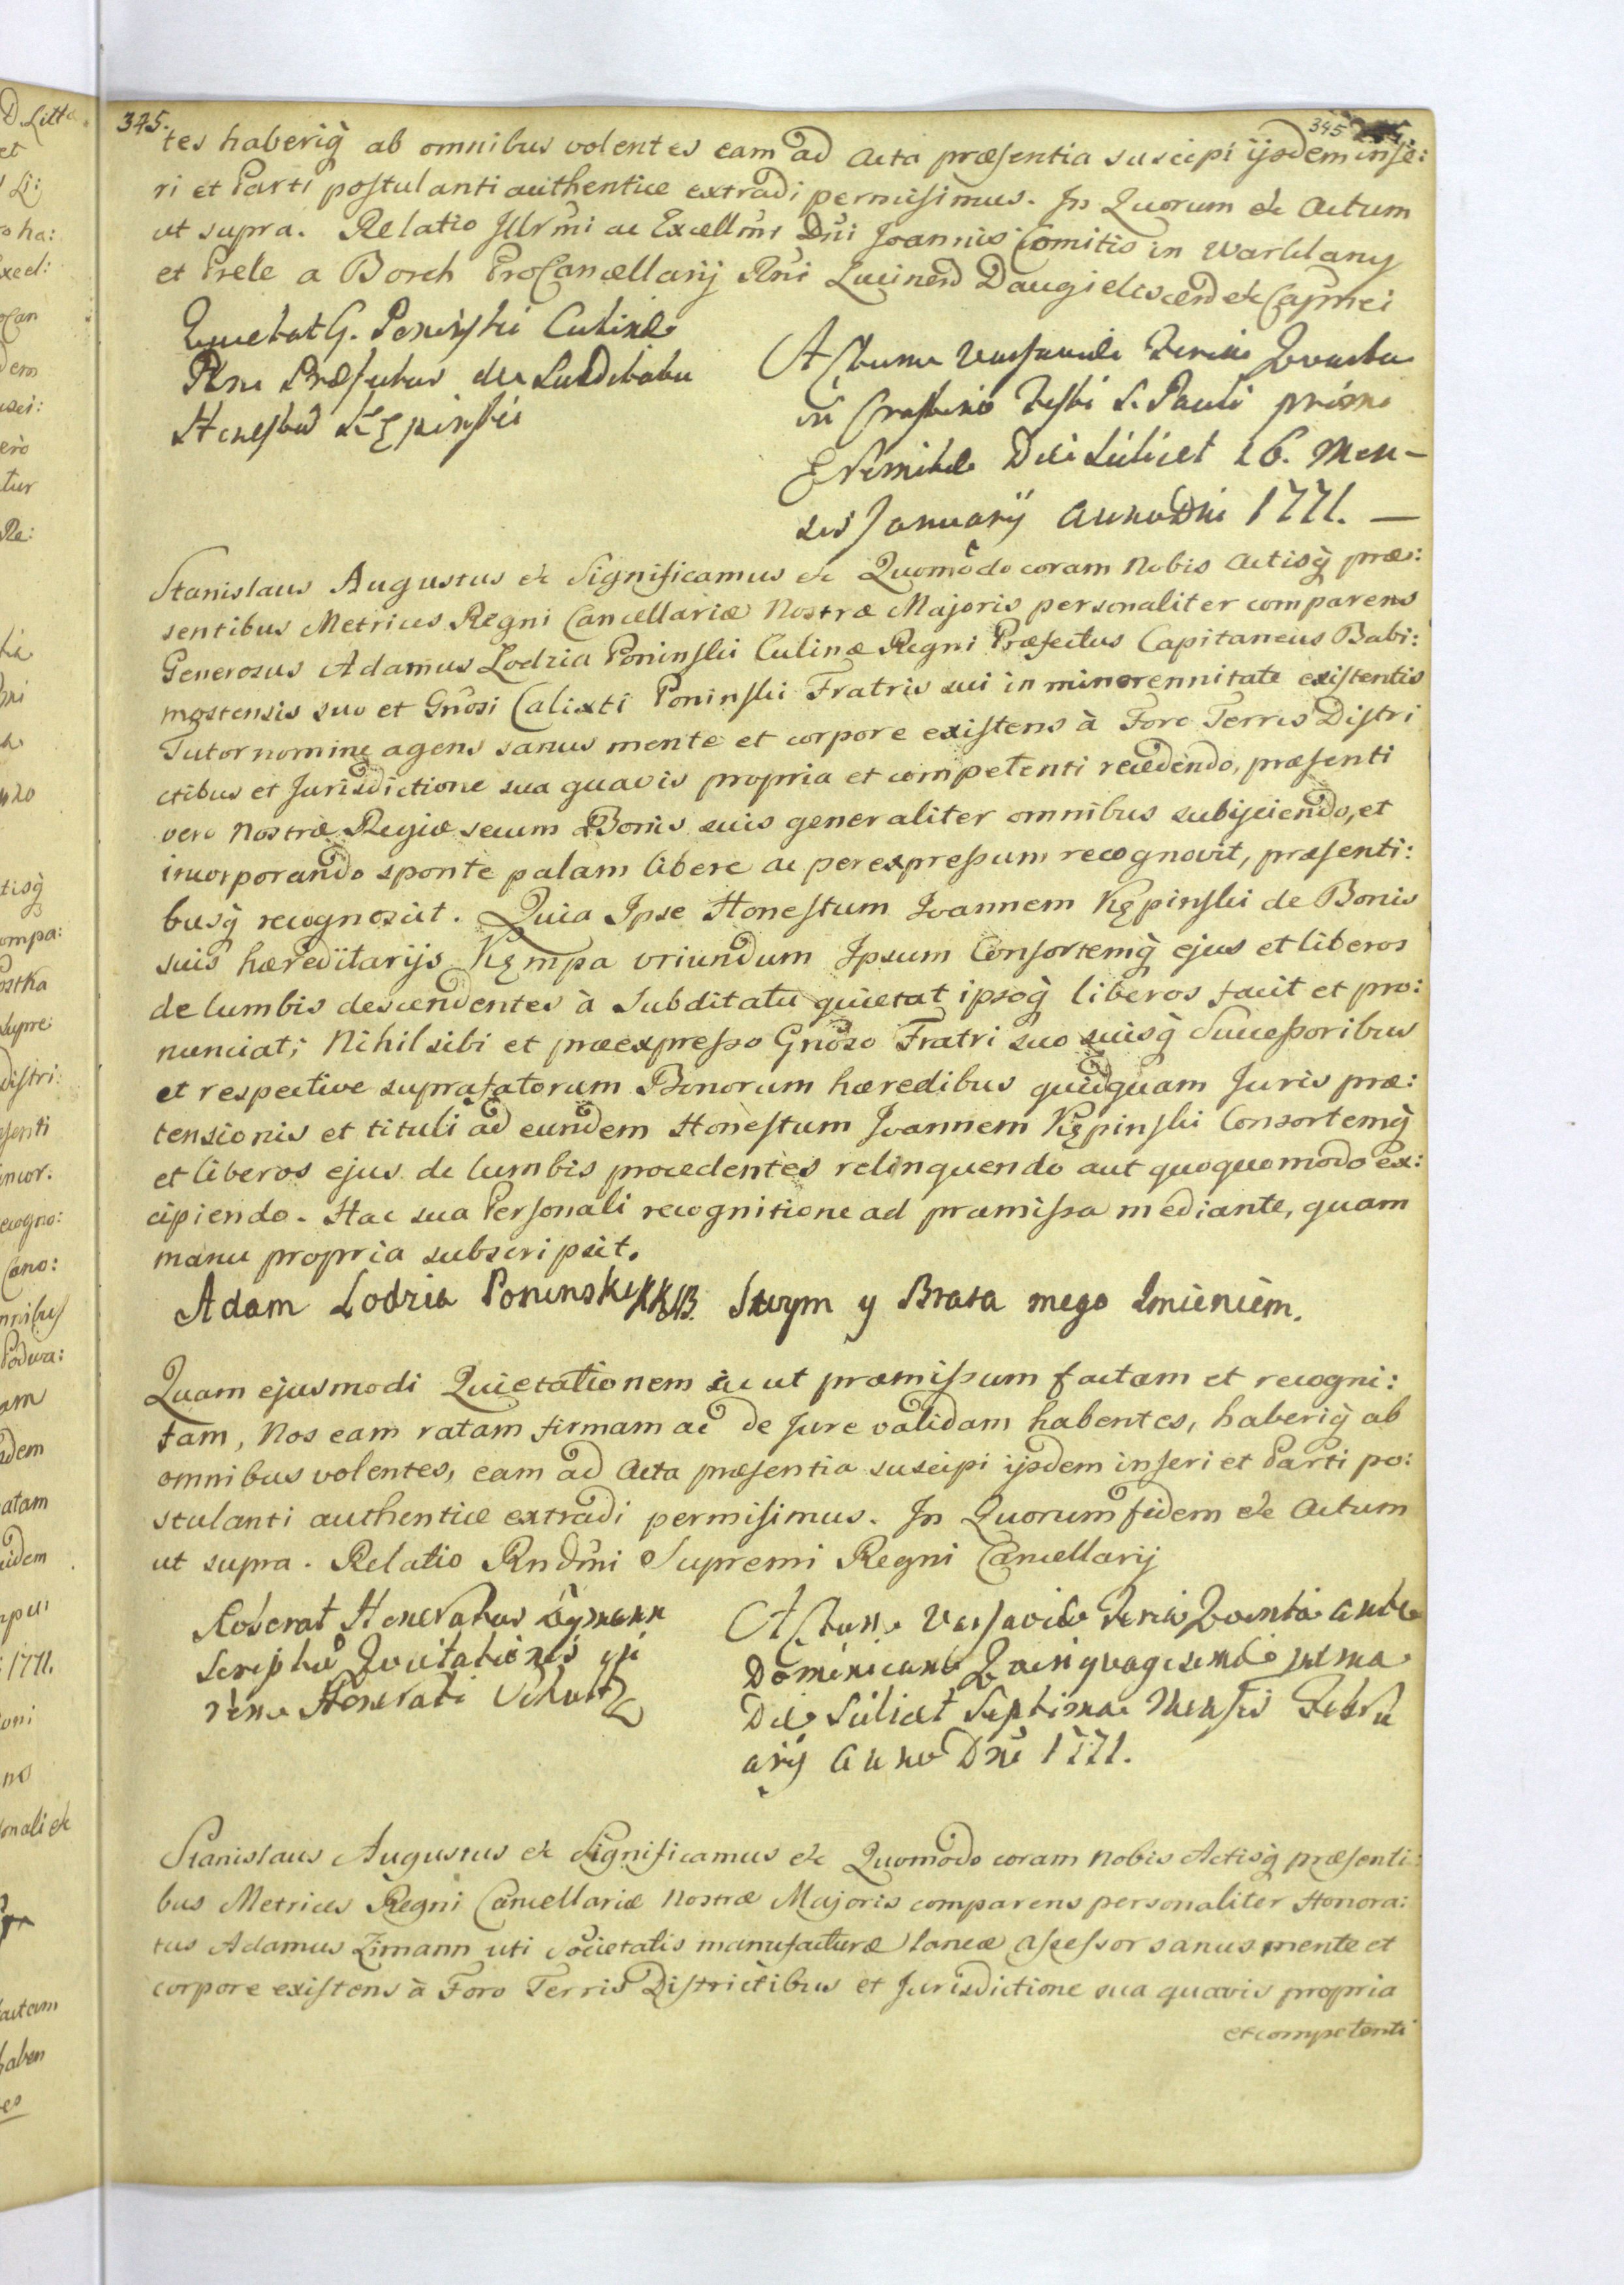 345.
345
tes haberiq̀ ab omnibus volentes eam ad Acta præsentia suscipi ijsdem inse:
ri et Parti postulanti authentice extradi permisimus. In Quorum &c Actum
ut supra. Relatio Illrmi ac Excellmi Dni Joannis Comitis in Warkland
et Prele a Borch ProCancellarij Rni Lucinen Daugieliscen &c Capnei
Quietat G. Poninski Culinæ
Rni Præfectus de Subditatu
Honestum Kępinski
Actum Varsaviæ Feria Quarta
in Crastino Festi S. Pauli primi
Eremitæ Die scilicet 16. Men-
sis Januarij Anno Dni 1771. —
Stanislaus Augustus &c Significamus &c Quomodo coram Nobis Actisq̀ præ:
sentibus Metrices Regni Cancellariæ Nostræ Majoris personaliter comparens
Generosus Adamus Lodzia Poninski Culinæ Regni Præfectus Capitaneus Babi:
mostensis suo et Gnosi Calixti Poninski Fratris sui in minorennitate existentis
Tutor nomine agens sanus mente et corpore existens à Foro Terris Distri
ctibus et Jurisdictione sua quavis propria et competenti recedendo, præsenti
vero Nostræ Regiæ secum Bonis suis generaliter omnibus subijciendo, et
incorporando sponte palam libere ac per expressum recognovit, præsenti:
busq̀ recognoscit. Quia Ipse Honestum Joannem Kępinski de Bonis
suis hæreditarijs Kępa oriundum Ipsum Consortemq̀ ejus et liberos
de lumbis descendentes à Subditatu quietat ipsoq̀ liberos facit et pro:
nunciat; Nihil sibi et præexpresso Gnoso Fratri suo suisq̀ Successoribus
et respective suprafatorum Bonorum hæredibus quidquam Juris præ:
tensionis et tituli ad eundem Honestum Joannem Kępinski Consortemq̀
et liberos ejus de lumbis procedentes relinquendo aut quoquomodo ex:
cipiendo. Hac sua Personali recognitione ad præmissa mediante, quam
manu propria subscripsit.
Adam Lodzia Poninski KKSB. Swym y Brata mego Imieniem.
Quam ejusmodi Quietationem sic ut præmissum factam et recogni:
tam, Nos eam ratam firmam ac de Jure validam habentes, haberiq̀ ab
omnibus volentes, eam ad Acta præsentia suscipi ijsdem inseri et Parti po:
stulanti authentice extradi permisimus. In Quorum fidem &c Actum
ut supra. Relatio Rndmi Supremi Regni Cancellarij
Roborat Honoratus Cymann
Scriptum Quietationis
Honorati Schultz
Actum Varsaviæ Feria Quinta ante
Dominicam Quinquagesimæ
Die scilicet Septima Mensis Febru
arij Anno Dni 1771.
Stanislaus Augustus &c Significamus &c Quomodo coram Nobis Actisq̀ præsenti:
bus Metrices Regni Cancellariæ Nostræ Majoris comparens personaliter Honora:
tus Adamus Zimann uti Societatis manufacturæ laneæ Assessor sanus mente et
corpore existens à Foro Terris Districtibus et Jurisdictione sua quavis propria
et competenti